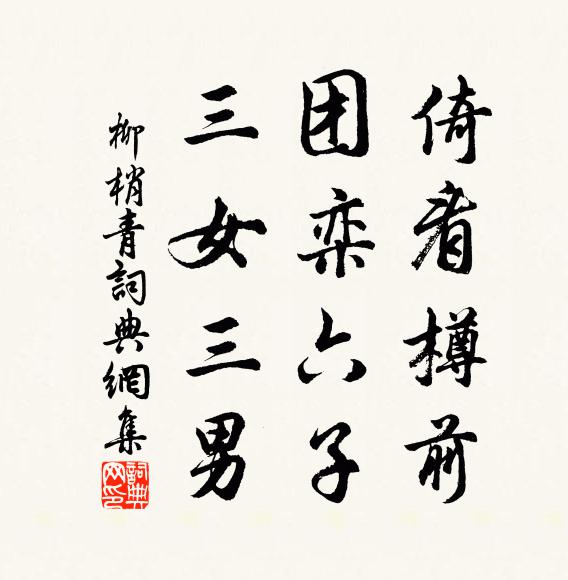 倚看樽前
团栾六子
三女三男
柳梢青詞典網集
詞典网印